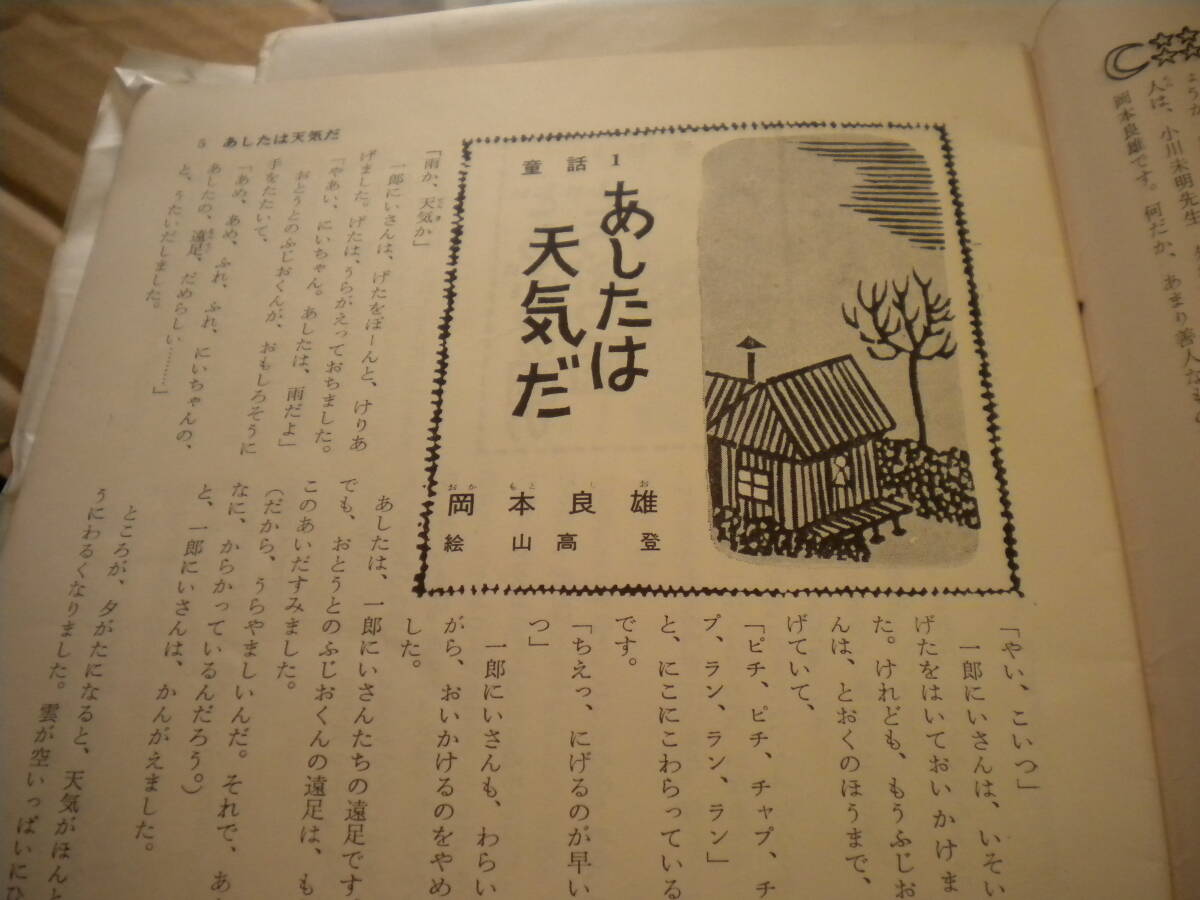 人は、小川未明先生
岡本良雄です。何だか、あまり善人な
5 あしたは天気だ
童話 1
あしたは
天気だ
岡本良雄
絵 山高登
「雨か、天気か」
一郎にいさんは、げたをぽーんと、けりあ
げました。げたは、うらがえっておちました。
「やあい、にいちゃん。あしたは、雨だよ」
おとうとのふじおくんが、おもしろそうに
手をたたいて、
「あめ、あめ、ふれ、ふれ、にいちゃんの、
あしたの、遠足、だめらしい………」
と、うたいだしました。
「やい、こいつ」
一郎にいさんは、いそい
げたをはいておいかけま
た。けれども、もうふじお
んは、とおくのほうまで、
げていて、
「ピチ、ピチ、チャプ、チ
プ、ラン、ラン、ラン」
と、にこにこわらっている
です。
「ちえっ、にげるのが早い
つ」
一郎にいさんも、わらい
がら、おいかけるのをやめ
した。
あしたは、一郎にいさんたちの遠足です
でも、おとうとのふじおくんの遠足は、も
このあいだすみました。
(だから、うらやましいんだ。それで、あ
なに、からかっているんだろう。)
と、一郎にいさんは、かんがえました。
ところが、夕がたになると、天気がほんと
うにわるくなりました。雲が空いっぱいにひ